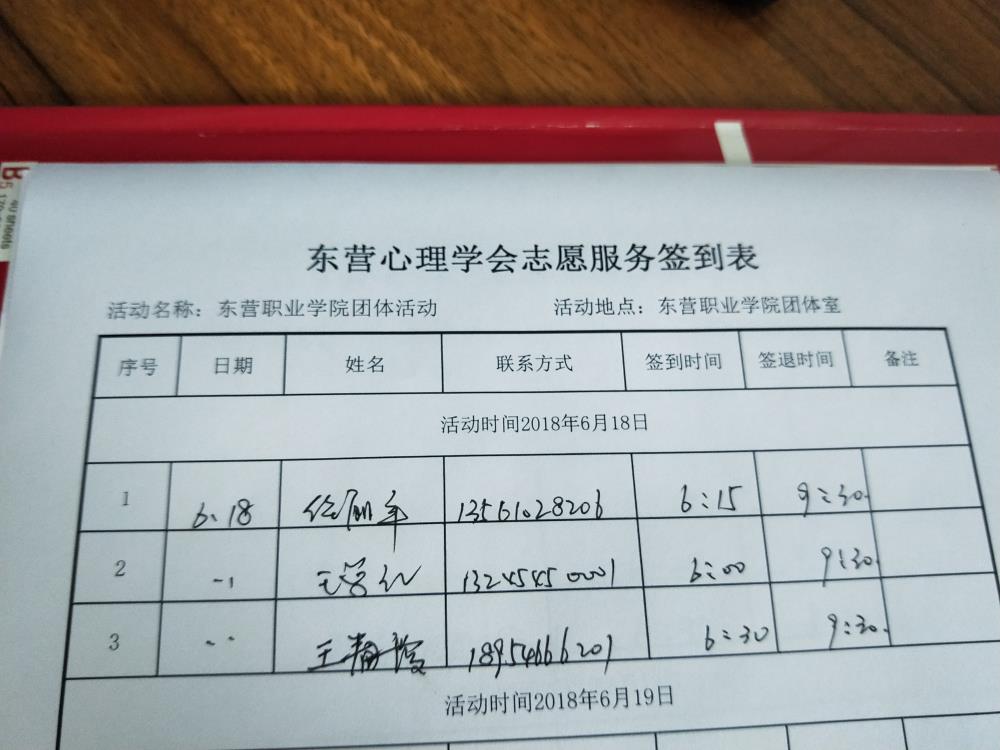 B5
40 sheets
东营心理学会志愿服务签到表
活动名称：东营职业学院团体活动 活动地点：东营职业学院团体室
序号 日期 姓名 联系方式 签到时间 签退时间 备注
活动时间2018年6月18日
1 6.18 13561028206 6:15 9:30.
2 13245450001 6:00 9:30.
3 王静 18954666201 6:30 9:30.
活动时间2018年6月19日